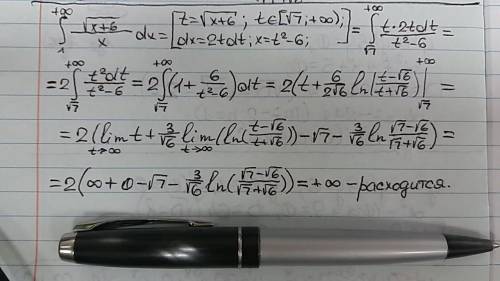 ∫₁^{+∞} √(x+6)/x dx = [t=√(x+6) ; t∈[√7;+∞); dx=2tdt; x=t²-6;] = ∫_{√7}^{+∞} t·2tdt/(t²-6) =
= 2∫_{√7}^{+∞} t²dt/(t²-6) = 2∫_{√7}^{+∞} (1+6/(t²-6))dt = 2(t+6/(2√6) ln|(t-√6)/(t+√6)|)|_{√7}^{+∞} =
= 2(lim_{t→∞} t + 3/√6 lim_{t→∞} (ln((t-√6)/(t+√6))) - √7 - 3/√6 ln (√7-√6)/(√7+√6)) =
= 2(∞+0-√7-3/√6 ln((√7-√6)/(√7+√6))) = +∞ - расходится.